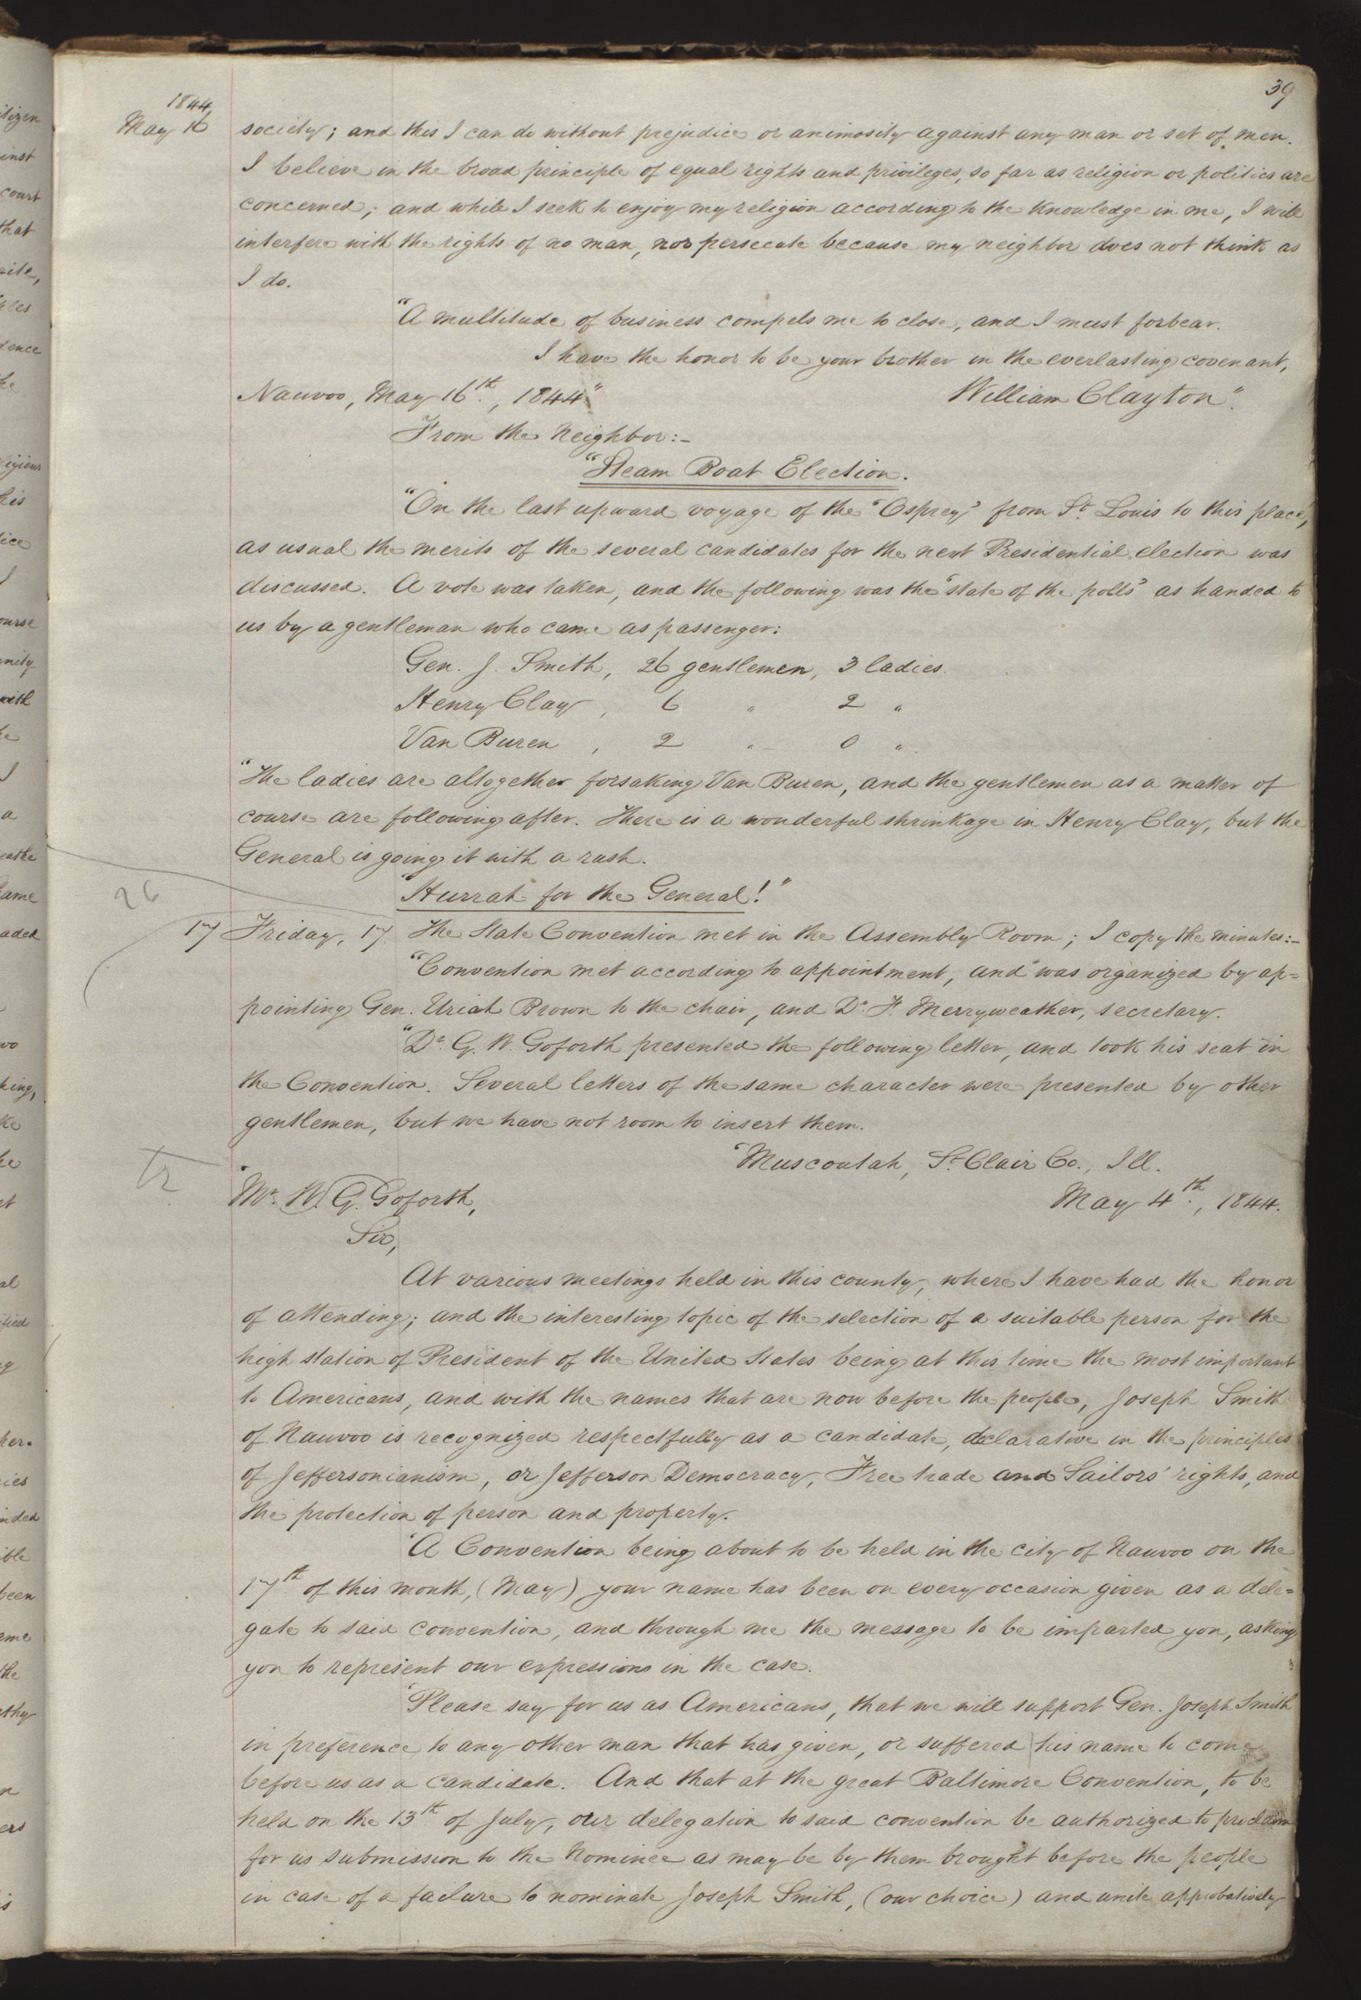 39
1844,
May 16 society; and this I can do without prejudice or animosity against any man or set of men.
I believe in the broad principle of equal rights and privileges, so far as religion or politics are
concerned; and while I seek to enjoy my religion according to the knowledge in me, I will
interfere with the rights of no man, nor persecute because my neighbor does not think as
I do.
"A multitude of business compels me to close, and I must forbear.
I have the honor to be your brother in the everlasting covenant,
Nauvoo, May 16th., 1844" William Clayton".
From the Neighbor:–
"Steam Boat Election.
"On the last upward voyage of the 'Osprey' from St. Louis to this place,
as usual the merits of the several candidates for the next Presidential election was
discussed. A vote was taken, and the following was the 'state of the polls' as handed to
us by a gentleman who came as passenger:
Gen. J. Smith, 26 gentlemen, 3 ladies.
Henry Clay, 6 " 2 "
Van Buren, 2 " 0 "
"The ladies are altogether forsaking Van Buren, and the gentlemen as a matter of
course are following after. There is a wonderful shrinkage in Henry Clay, but the
General is going it with a rush.
"Hurrah for the General!"
26
17 Friday, 17 The State Convention met in the Assembly Room; I copy the minutes:–
"Convention met according to appointment, and was organized by ap=
pointing Gen. Uriah Brown to the chair, and Dr. F. Merryweather, secretary.
"Dr. G. W. Goforth presented the following letter, and took his seat in
the Convention. Several letters of the same character were presented by other
gentlemen, but we have not room to insert them.
"Muscoutah, St. Clair Co., Ill.
tr
"Mr. W. G. Goforth, May 4th., 1844.
Sir,
At various meetings held in this county, where I have had the honor
of attending; and the interesting topic of the selection of a suitable person for the
high station of President of the United States being at this time the most important
to Americans, and with the names that are now before the people, Joseph Smith
of Nauvoo is recognized respectfully as a candidate, declarative in the principles
of Jeffersonianism, or Jefferson Democracy, Free trade and Sailors' rights, and
the protection of person and property.
"A Convention being about to be held in the city of Nauvoo on the
17th of this month, (May) your name has been on every occasion given as a dele=
gate to said convention, and through me the message to be imparted you, asking
you to represent our expressions in the case.
"Please say for us as Americans, that we will support Gen. Joseph Smith
in preference to any other man that has given, or suffered his name to come
before us as a candidate. And that at the great Baltimore Convention, to be
held on the 13th of July, our delegation to said convention be authorized to proclaim
for us submission to the Nominee as may be by them brought before the people
in case of a failure to nominate Joseph Smith, (our choice) and unite approbatively